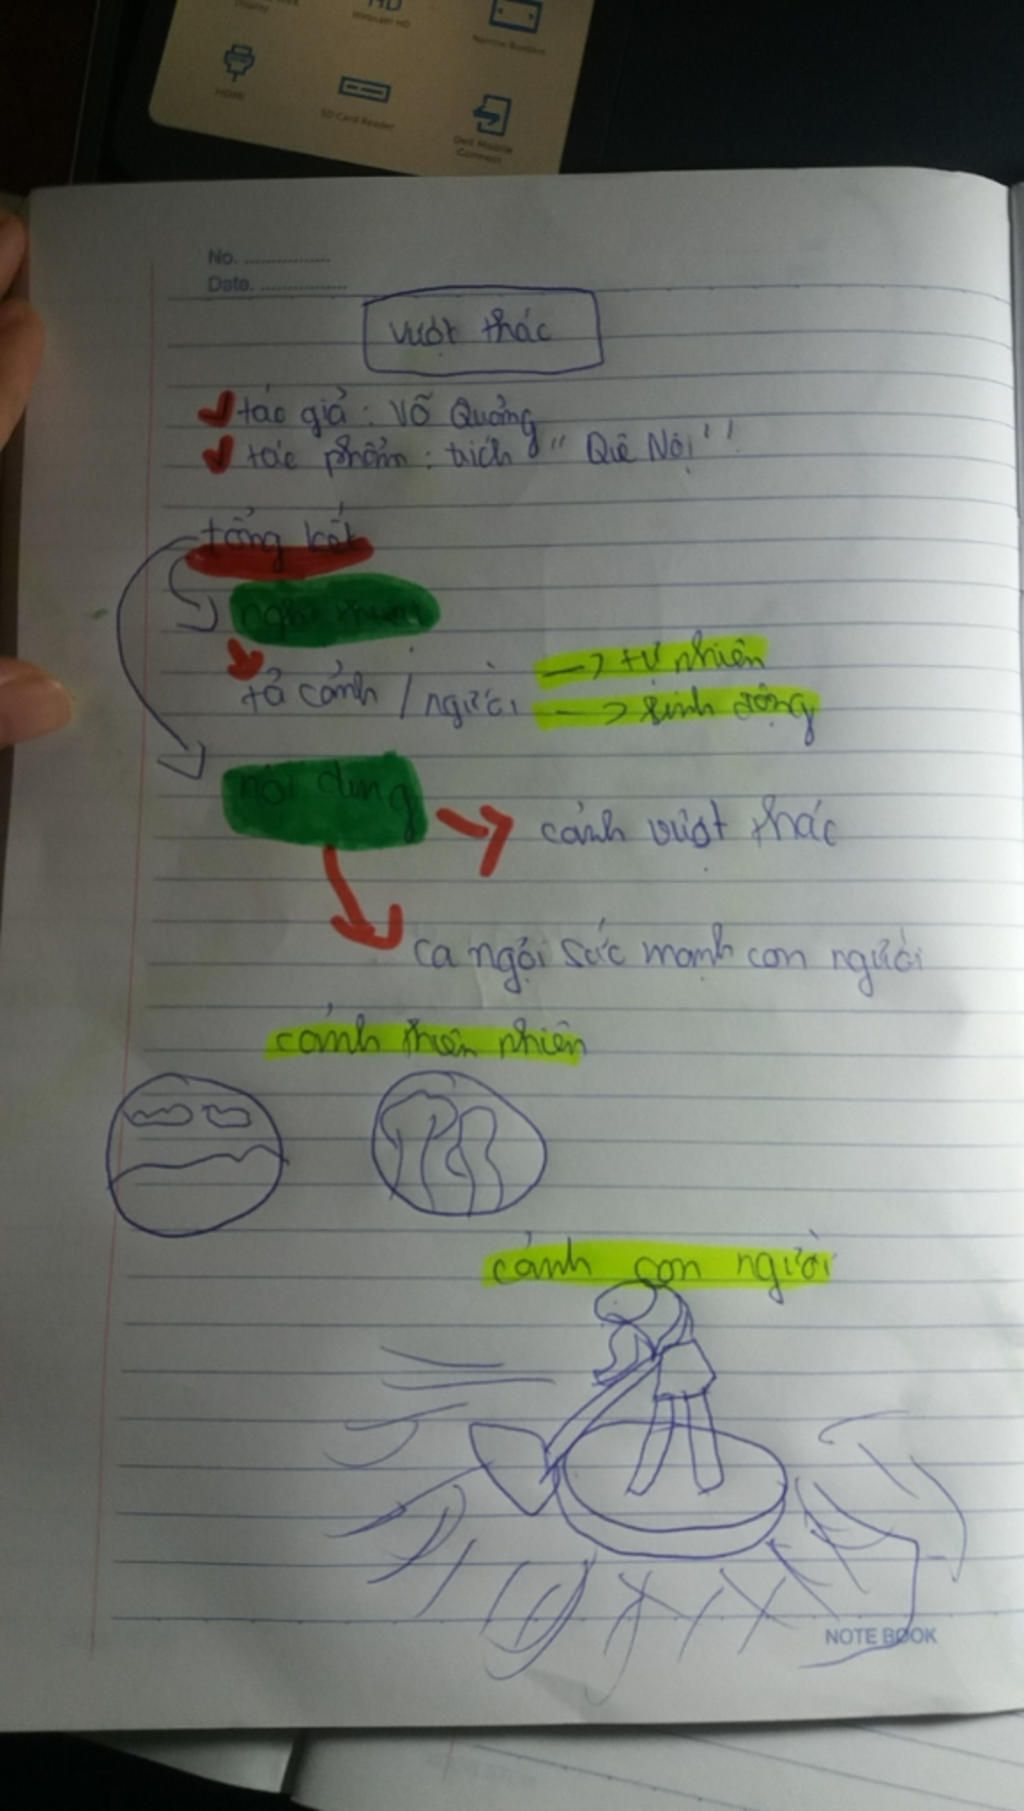 HD
Webcam HD
Display
Narrow Borders
HDMI
SD Card Reader
Dell Mobile
Connect
No. ................
Date. ................
vượt thác
tác giả : Võ Quảng
tác phẩm : trích " Quê Nội "
tổng kết
nghệ thuật
tả cảnh / người → tự nhiên
→ sinh động
nội dung
cảnh vượt thác
ca ngợi sức mạnh con người
cảnh thiên nhiên
cảnh con người
NOTE BOOK